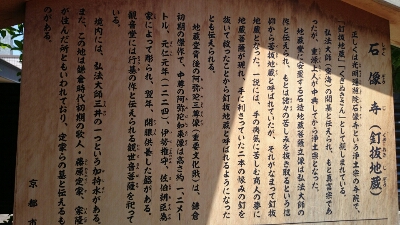 石像寺(釘抜地蔵)
正しくは光明遍照院石像寺という浄土宗の寺院で、
「釘抜地蔵」「くぎぬきさん」として親しまれている。
弘法大師(空海)の開基と伝えられ、もと真言宗であ
ったが、重源上人が中興してから浄土宗となった。
地蔵堂に安置する石造地蔵菩薩立像は弘法大師の
作と伝えられ、もとは諸々の苦しみを抜き取るという信
仰から苦抜地蔵と呼ばれていたが、それがなまって釘抜
地蔵となった。一説には、手の病気に苦しむ商人の夢に
地蔵菩薩が現れ、手に刺さっていた二本の恨みの釘を
抜いて救ったことから釘抜地蔵と呼ばれるようになった
とも伝えられる。
地蔵堂の後の阿弥陀三尊像(重要文化財)は、鎌倉
初期の像で、中尊の阿弥陀如来像は高さ約一、二メー
トル、元仁元年(一二二四)、伊勢権守、佐伯朝臣為
家によって彫られ、翌年、開眼供養した銘がある。
観音堂には行基の作と伝えられる観世音菩薩を祀って
いる。
境内には、弘法大師三井の一つという加持水がある。
また、この地は鎌倉時代初期の歌人・藤原定家、家隆
が住んだ所ともいわれており、定家らの墓と伝えるも
京都市